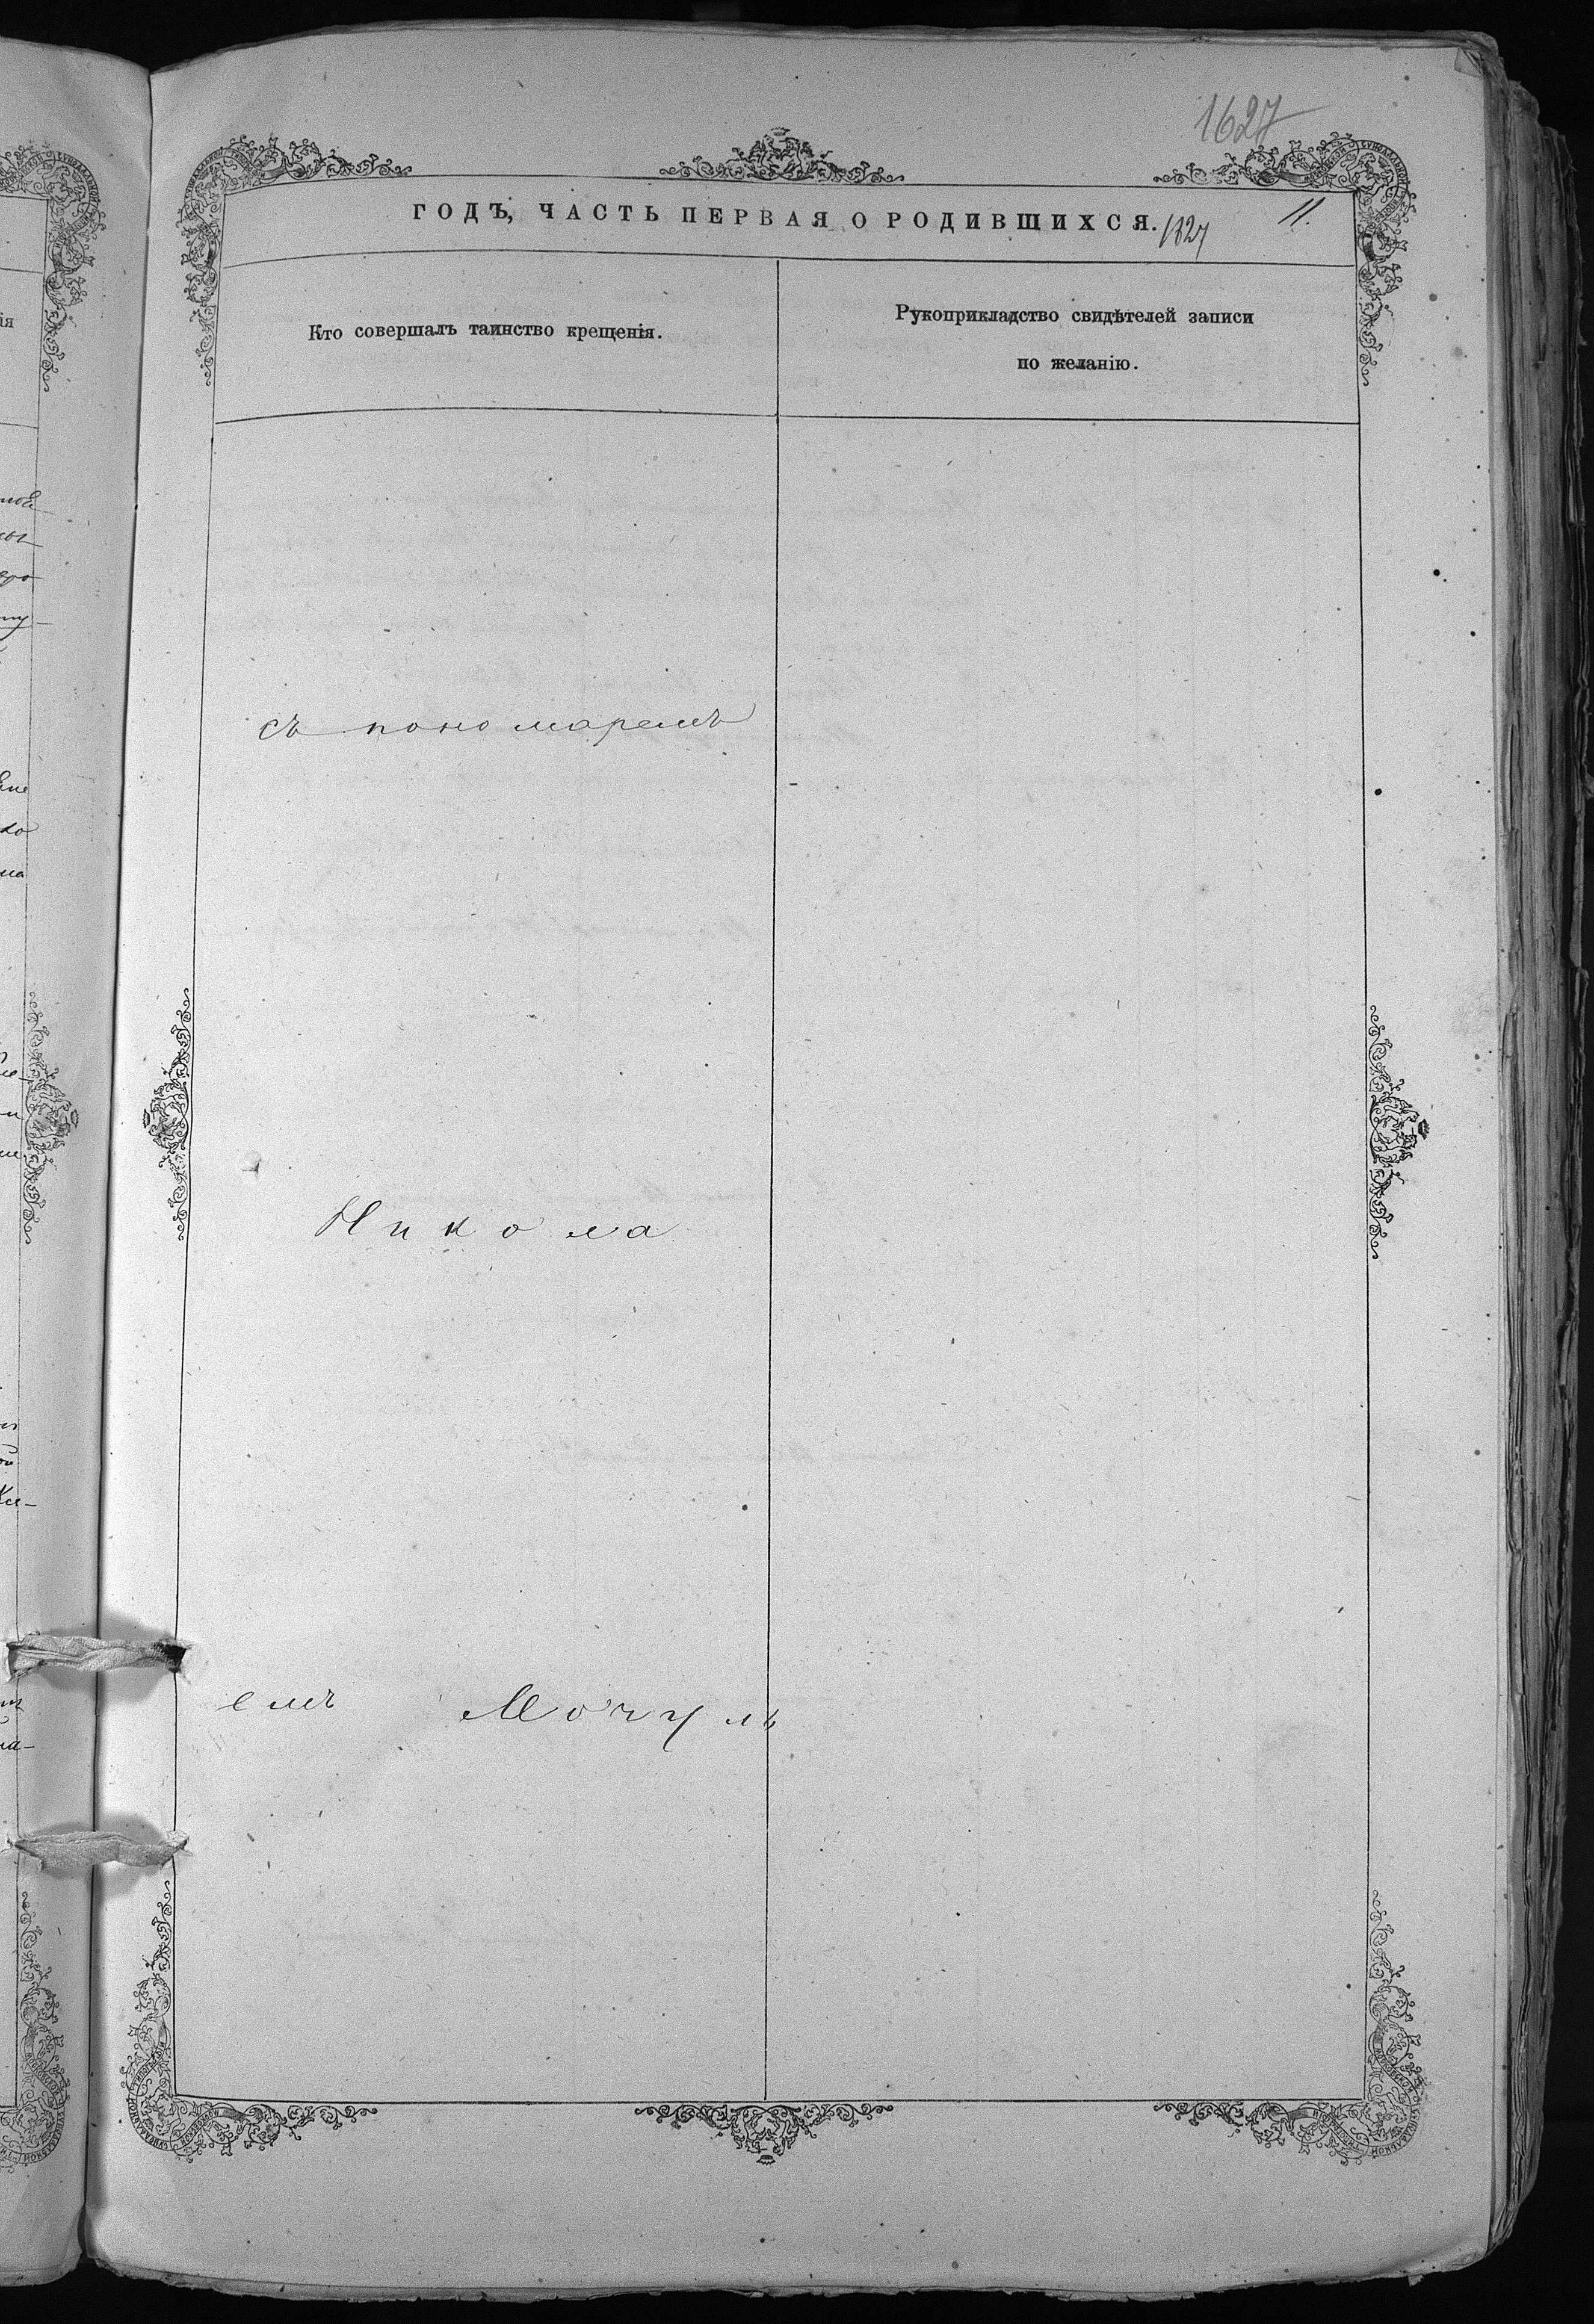 1627
ГОДЪ, ЧАСТЬ ПЕРВАЯ О РОДИВШИХСЯ. 1827 11.
Кто совершалъ таинство крещенія.
Рукоприкладство свидѣтелей записи
по желанію.
съ пономаремъ
Никола
емъ Мочуль